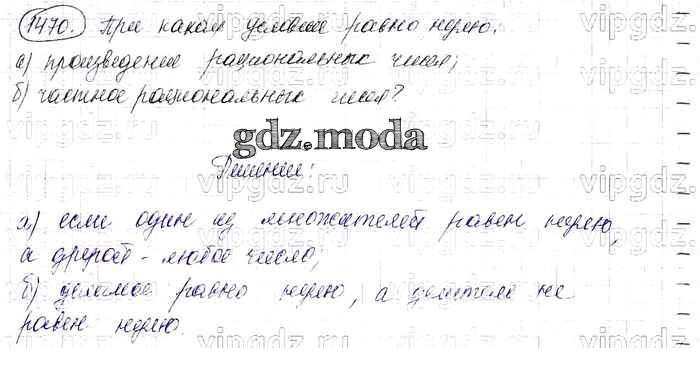 1470. При каком условии равно нулю:
а) произведение рациональных чисел;
б) частное рациональных чисел?
gdz.moda
Решение:
а) если один из множителей равен нулю,
а другой - любое число;
б) делимое равно нулю, а делитель не
равен нулю.
vipgdz.ru